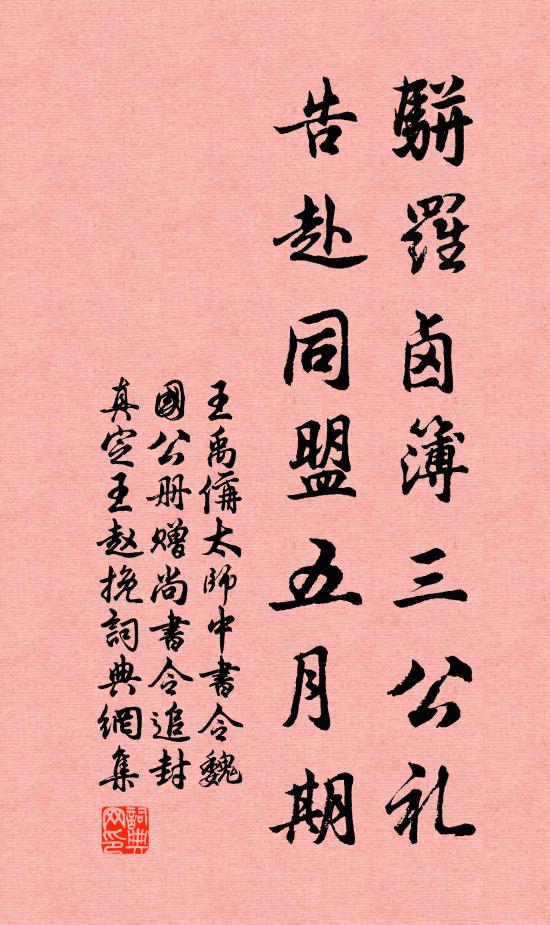 駢羅鹵簿三公礼
告赴同盟五月期
王禹偁太师中書令魏
國公册赠尚書令追封
真定王赵挽詞典網集
詞典网印